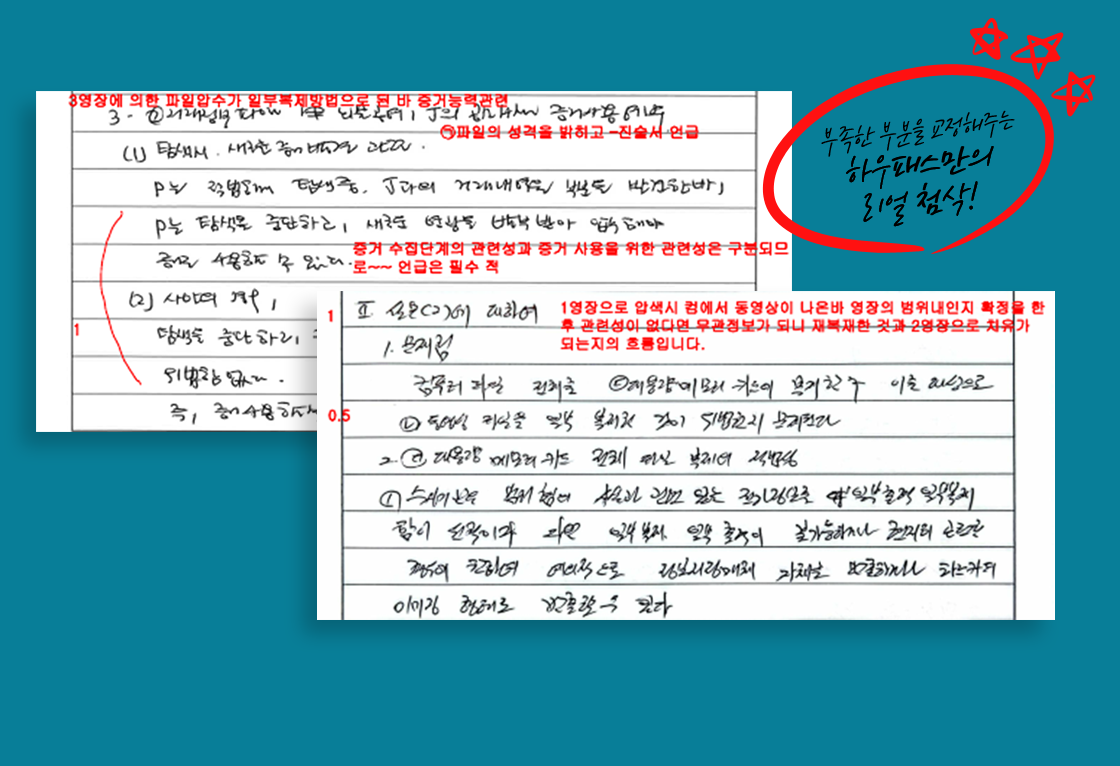 부족한 부분을 교정해주는
하우패스만의
리얼 첨삭!
3영장에 의한 파일압수가 일부복제방법으로 된 바 증거능력관련
3-
증거사용여부
㉠파일의 성격을 밝히고 -진술서 언급
(1) 탐색시, 새로운
P는 적법하게 탐색중, J과의 거래내역을 발견한바,
P는 탐색을 중단하고, 새로운 영장을 발부 받아 압수해야
증거 수집단계의 관련성과 증거 사용을 위한 관련성은 구분되므
증거로 사용할 수 있다.
로~~ 언급은 필수 적
(2) 사안의 경우,
1
탐색을 중단하고,
위법함 없다.
즉, 증거사용
1
II. 설문(2)에 대하여
1영장으로 압색시 컴에서 동영상이 나온바 영장의 범위내인지 확정을 한
후 관련성이 없다면 무관정보가 되니 재복재한 것과 2영장으로 치유가
되는지의 흐름입니다.
1. 문제점
컴퓨터 파일 전체를 ㉢대용량메모리 카드에 복제한 후 이를 대상으로
0.5
㉡ 동영상 파일을 일부 복제한 것이 위법한지 문제된다
2. ㉢ 대용량 메모리 카드 전체 파일 복제의 적법성
① 수사기관은 범위 정하여 일부출력 일부복제
함이 원칙이나 일부복제, 일부 출력이 불가능하거나 현저히 곤란한
경우에 한하여 예외적으로 정보저장매체 자체를 반출하거나 하드카피
이미징 형태로 반출할 수 있다